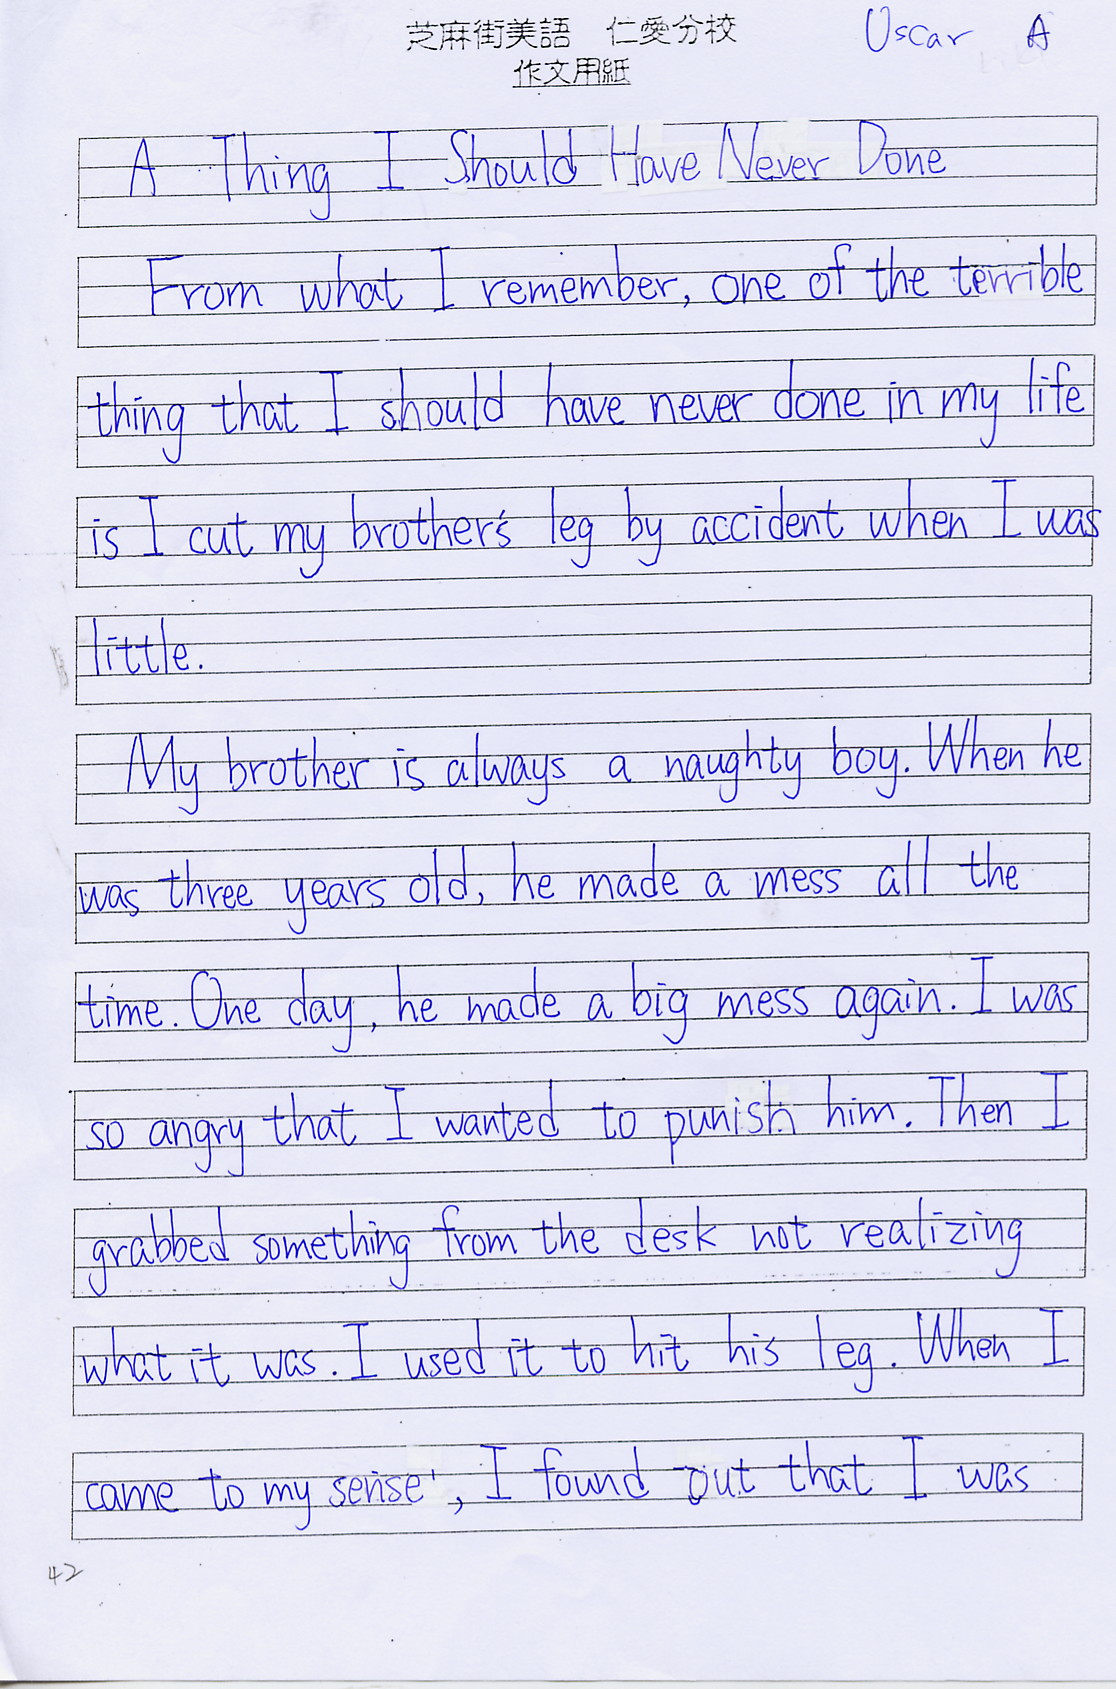 芝麻街美語 仁愛分校 Uscar A
作文用紙
A Thing I Should Have Never Done
From what I remember, one of the terrible
thing that I should have never done in my life
is I cut my brother's leg by accident when I was
little.
My brother is always a naughty boy. When he
was three years old, he made a mess all the
time. One day, he made a big mess again. I was
so angry that I wanted to punish him. Then I
grabbed something from the desk not realizing
what it was. I used it to hit his leg. When I
came to my sense', I found out that I was
42